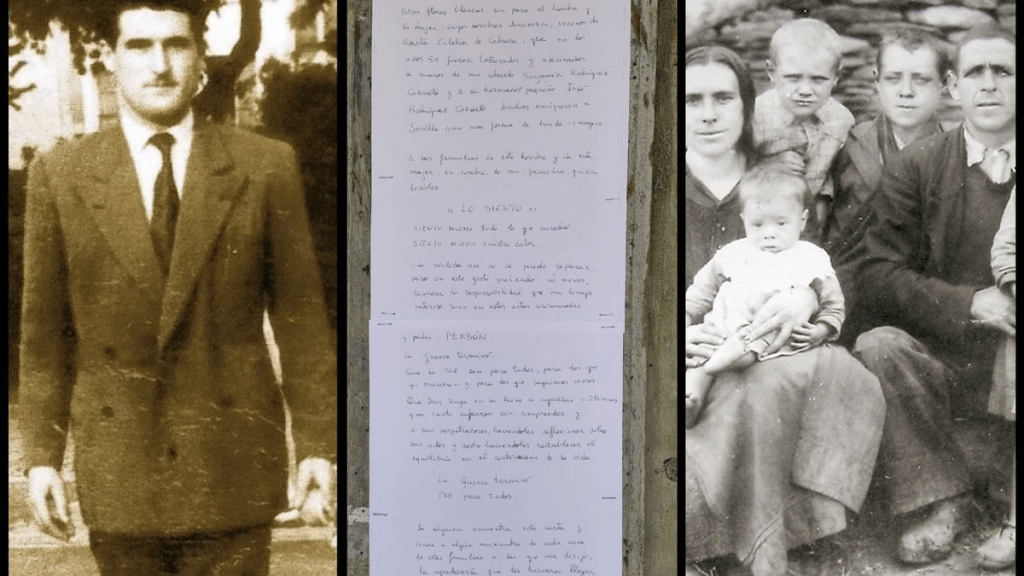 Estas flores blancas son para el hombre y
la mujer, cuyos nombres desconozco, vecinos de
Santa Eulalia de Cabrera, que en los
años 50 fueron torturados y asesinados
a manos de mi abuelo Benjamín Rodríguez
Cañueto y de su hermano pequeño José
Rodríguez Cañueto. Ambos emigraron a
Sevilla como una forma de huida
A las familias de este hombre y de esta
mujer, en nombre de mi familia, quiero
decirles:
"LO SIENTO"
SIENTO MUCHO todo lo que sucedió
SIENTO MUCHO vuestro dolor.
no se puede reparar,
pero con este gesto pretendo al menos,
reconocer la responsabilidad que mi linaje
paterno tuvo en estos actos criminales
y pedir PERDÓN.
La Guerra terminó.
Que la PAZ sea para todos, para los que
ya murieron y para los que seguimos vivos.
Que Dios tenga en su Reino a aquellas víctimas
que tanto sufrieron sin comprender y
a sus perpetradores, haciéndoles reflexionar sobre
sus actos y haciéndoles restablecer el
equilibrio en el continuum de la vida.
La Guerra terminó
PAZ para todos.
Si alguien encuentra esta carta y
conoce a algún miembro de cada una
de estas familias a las que me dirijo,
le agradecería que les hiciera llegar